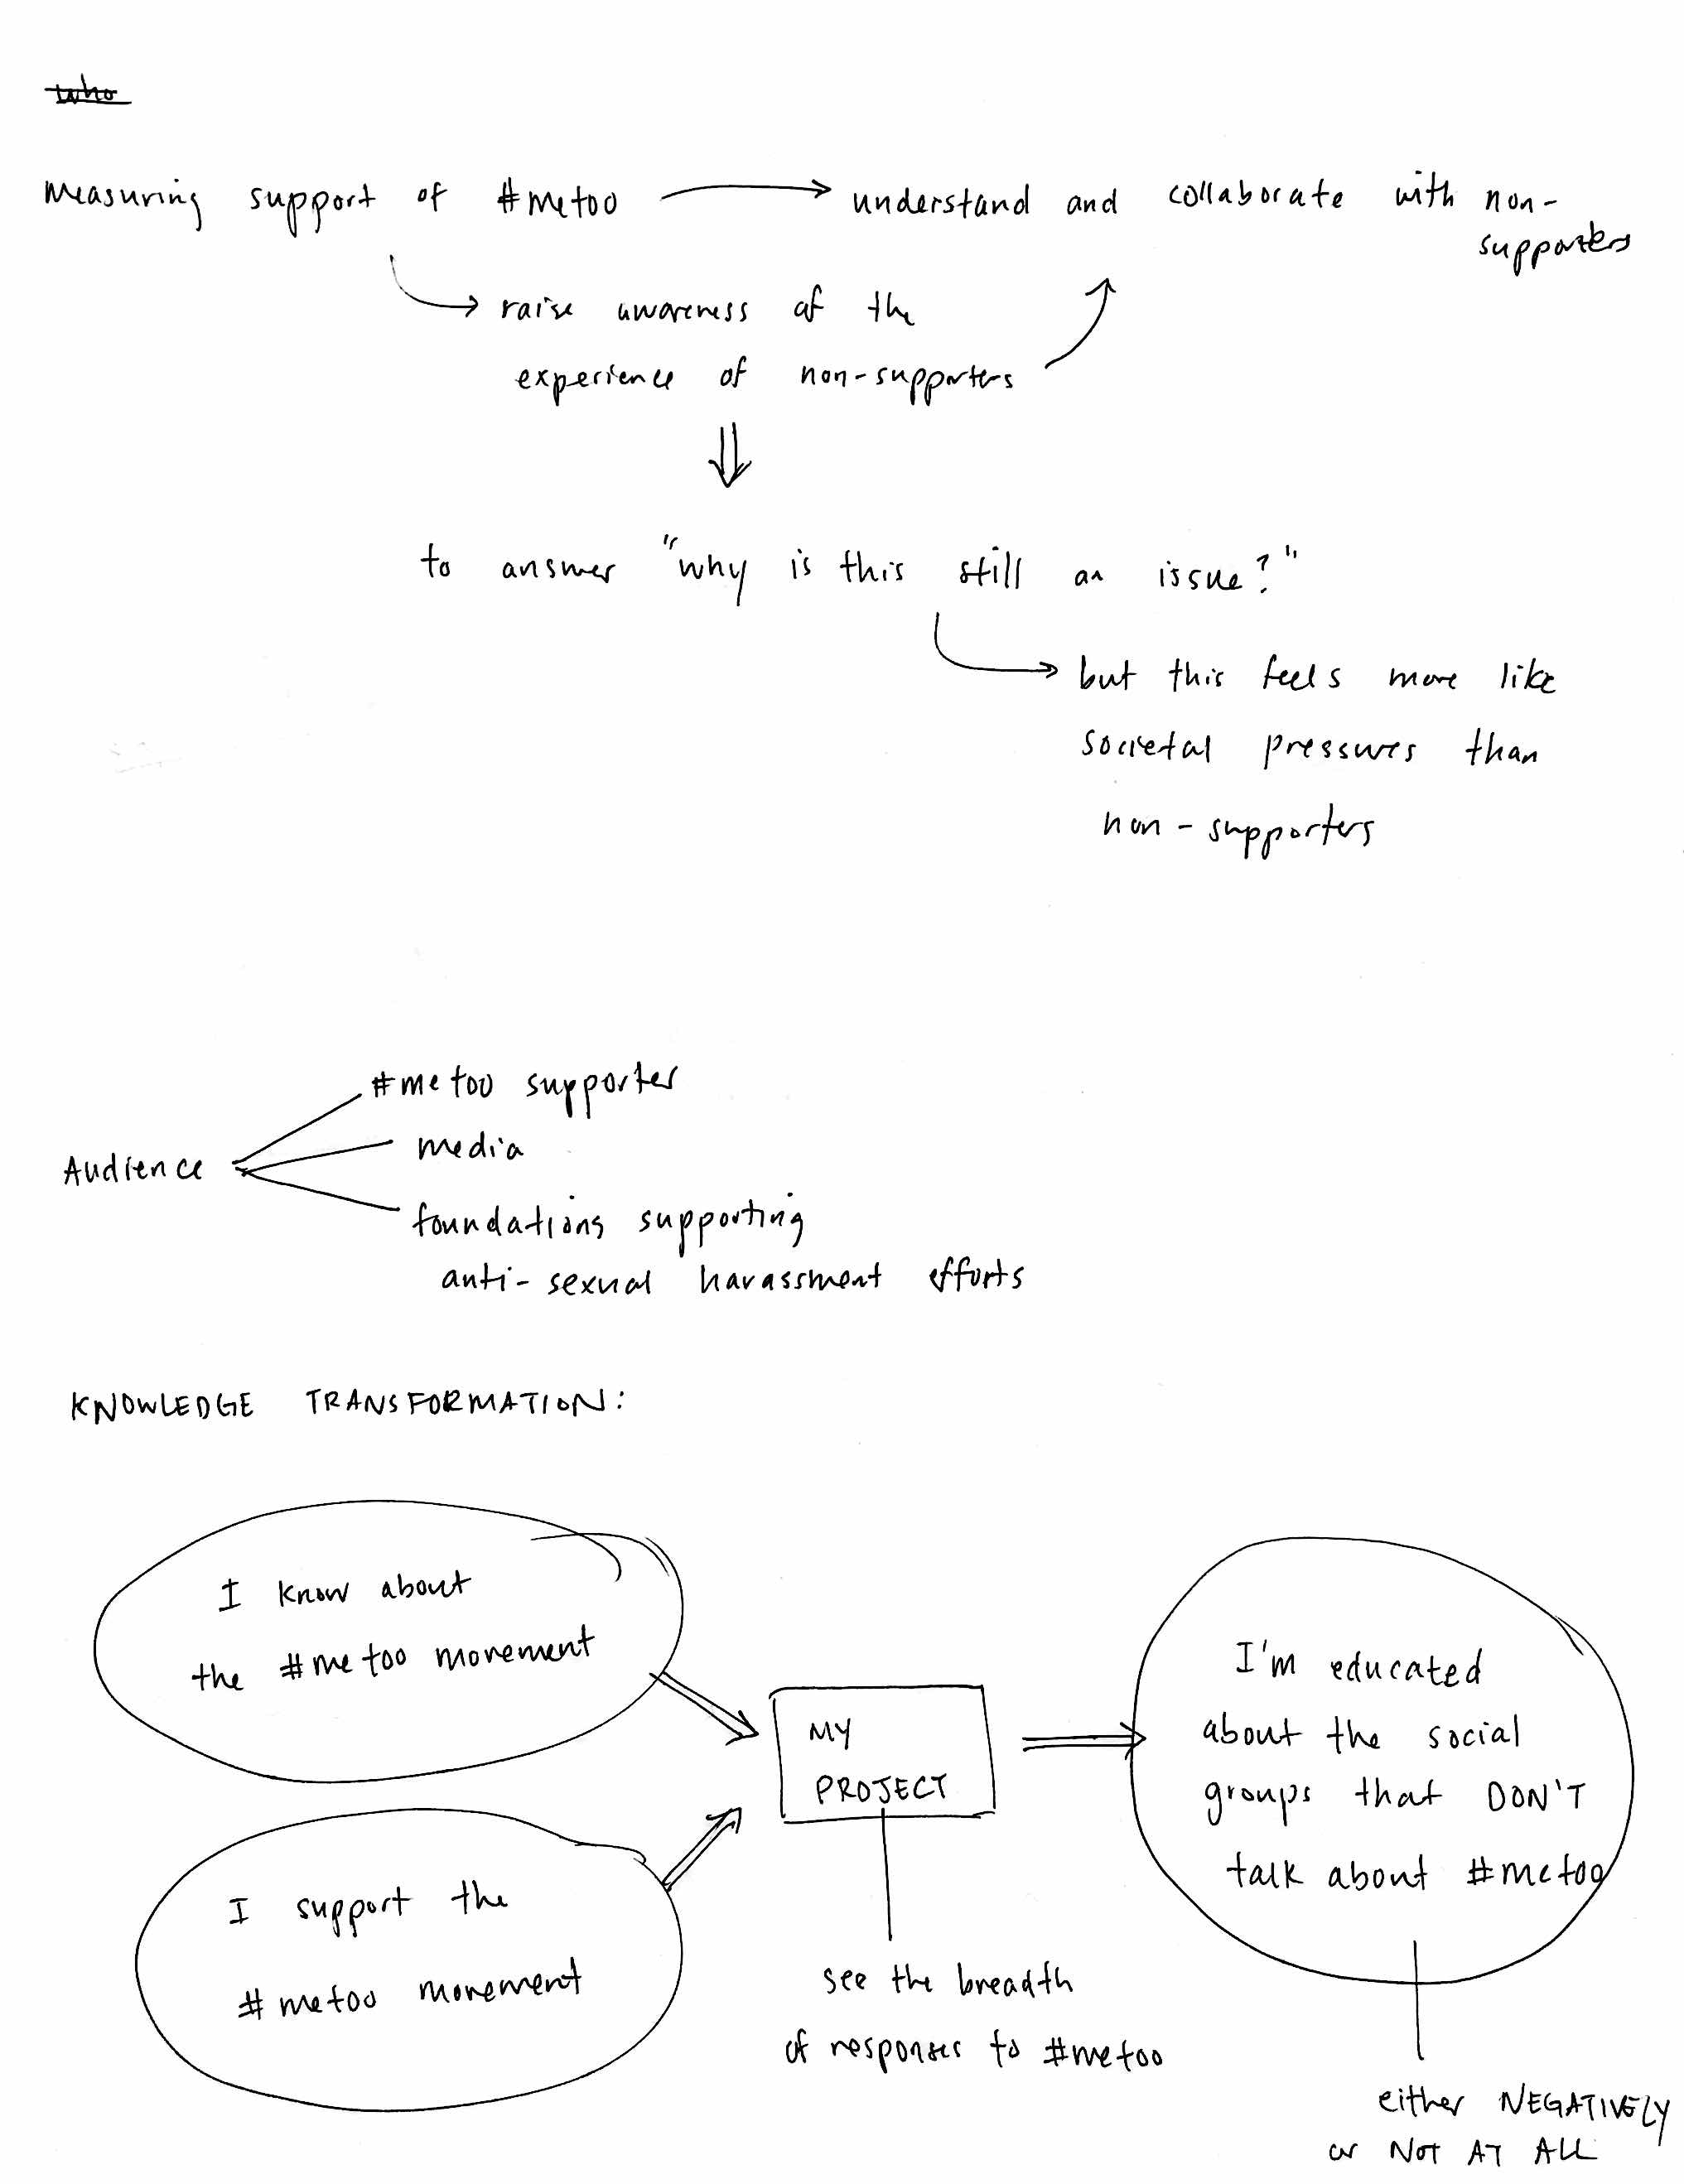 who
measuring support of #metoo → understand and collaborate with non-
supporters
raise awareness of the
experience of non-supporters
to answer "why is this still an issue?"
but this feels more like
societal pressures than
non-supporters
Audience
#metoo supporter
media
foundations supporting
anti-sexual harassment efforts
KNOWLEDGE TRANSFORMATION:
I know about
the #metoo movement
I support the
#metoo movement
MY
PROJECT
see the breadth
of responses to #metoo
I'm educated
about the social
groups that DON'T
talk about #metoo
either NEGATIVELY
or NOT AT ALL